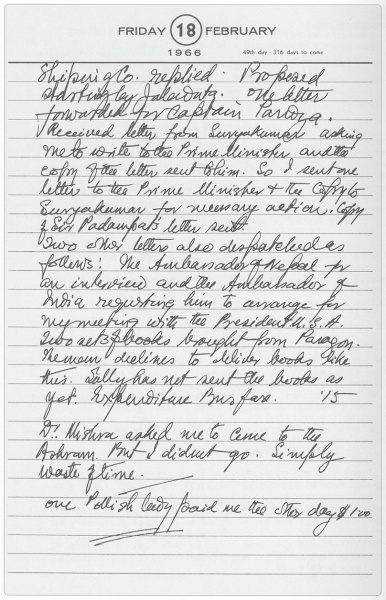 FRIDAY 18 FEBRUARY
1966 49th day - 316 days to come
Shiping Co. replied. Proposed
starting by Jaladuta. One letter
forwarded for Captain Pandya.
Received letter from Suryakumar asking
me to write to the Prime Minister and the
copy of the letter sent to him. So I sent one
letter to the Prime Minister & the Copy to
Suryakumar for necessary action. Copy
of Sir Padampat's letter sent.
Two other letters also despatched as
follows: The Ambassador of Nepal for
an interview and the Ambassador of
India requesting him to arrange for
my meeting with the President U.S.A.
Two sets of books brought from Paragon.
The man declines to deliver books like
this. Sally has not sent the books as
yet. Expenditure Bus fare. '15
Dr. Mishra asked me to come to the
Ashram. But I didnot go. Simply
waste of time.
one Polish lady paid me the other day $1.00